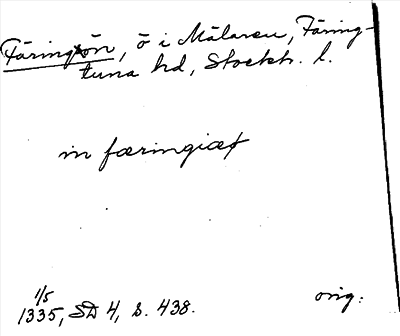 Färingsön, ö i Mälaren, Färing-
tuna hd, Stockh. l.
in færingiæ
1/5
1335, SD 4, s. 438.
orig.